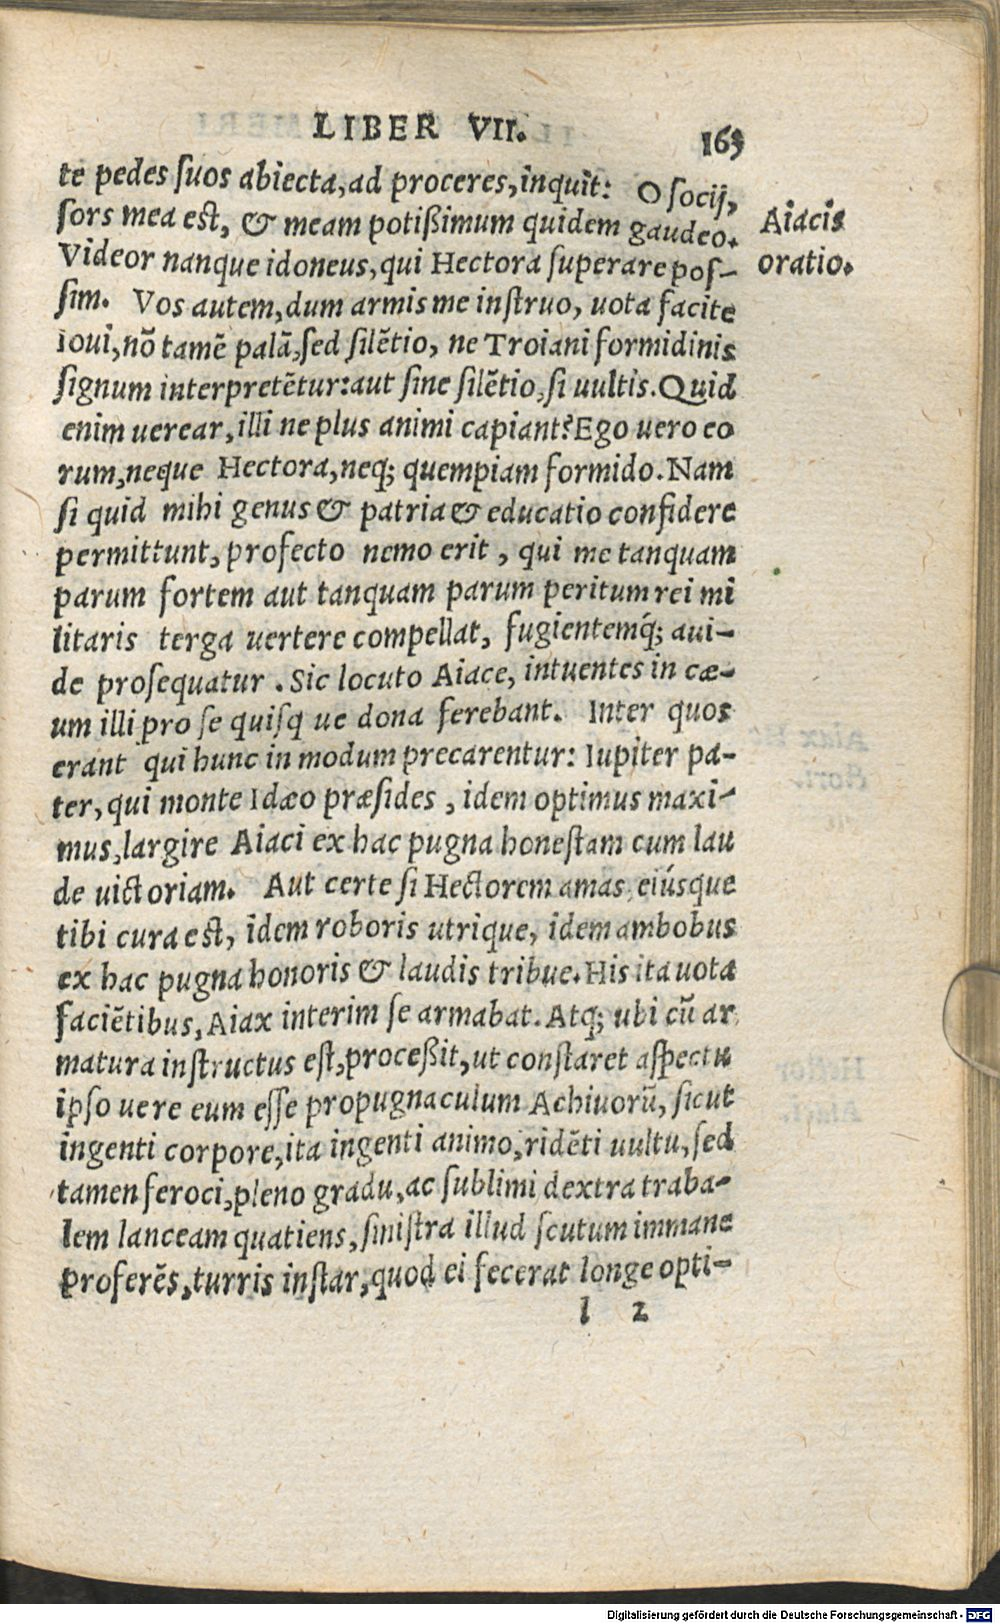 LIBER VII.
163
te pedes ſuos abiecta, ad proceres, inquit: O ſocij,
ſors mea est, & meam potißimum quidem gaudeo.
Videor nanque idoneus, qui Hectora ſuperare poſ-
ſim. Vos autem, dum armis me inſtruo, uota facite
Ioui, nõ tamẽ palã, ſed ſilẽtio, ne Troiani formidinis
ſignum interpretẽtur: aut ſine ſilẽtio, ſi uultis. Quid
enim uerear, illi ne plus animi capiant? Ego uero eo
rum, neque Hectora, neq; quempiam formido. Nam
ſi quid mihi genus & patria & educatio confidere
permittunt, profecto nemo erit, qui me tanquam
parum fortem aut tanquam parum peritum rei mi
litaris terga uertere compellat, fugientemq́; aui-
de proſequatur. Sic locuto Aiace, intuentes in cæ-
um illi pro ſe quiſq ue dona ferebant. Inter quos
erant qui hunc in modum precarentur: Iupiter pa-
ter, qui monte Idæo præſides, idem optimus maxi-
mus, largire Aiaci ex hac pugna honeſtam cum lau
de uictoriam. Aut certe ſi Hectorem amas, eiúsque
tibi cura est, idem roboris utrique, idem ambobus
ex hac pugna honoris & laudis tribue. His ita uota
faciẽtibus, Aiax interim ſe armabat. Atq; ubi cũ ar
matura inſtructus eſt, proceßit, ut conſtaret aſpectu
ipſo uere eum eſſe propugnaculum Achiuorũ, ſicut
ingenti corpore, ita ingenti animo, ridẽti uultu, ſed
tamen feroci, pleno gradu, ac ſublimi dextra traba-
lem lanceam quatiens, ſiniſtra illud ſcutum immane
proferẽs, turris inſtar, quod ei fecerat longe opti-
l 2
Aiacis
oratio.
Digitalisierung gefördert durch die Deutsche Forschungsgemeinschaft - DFG